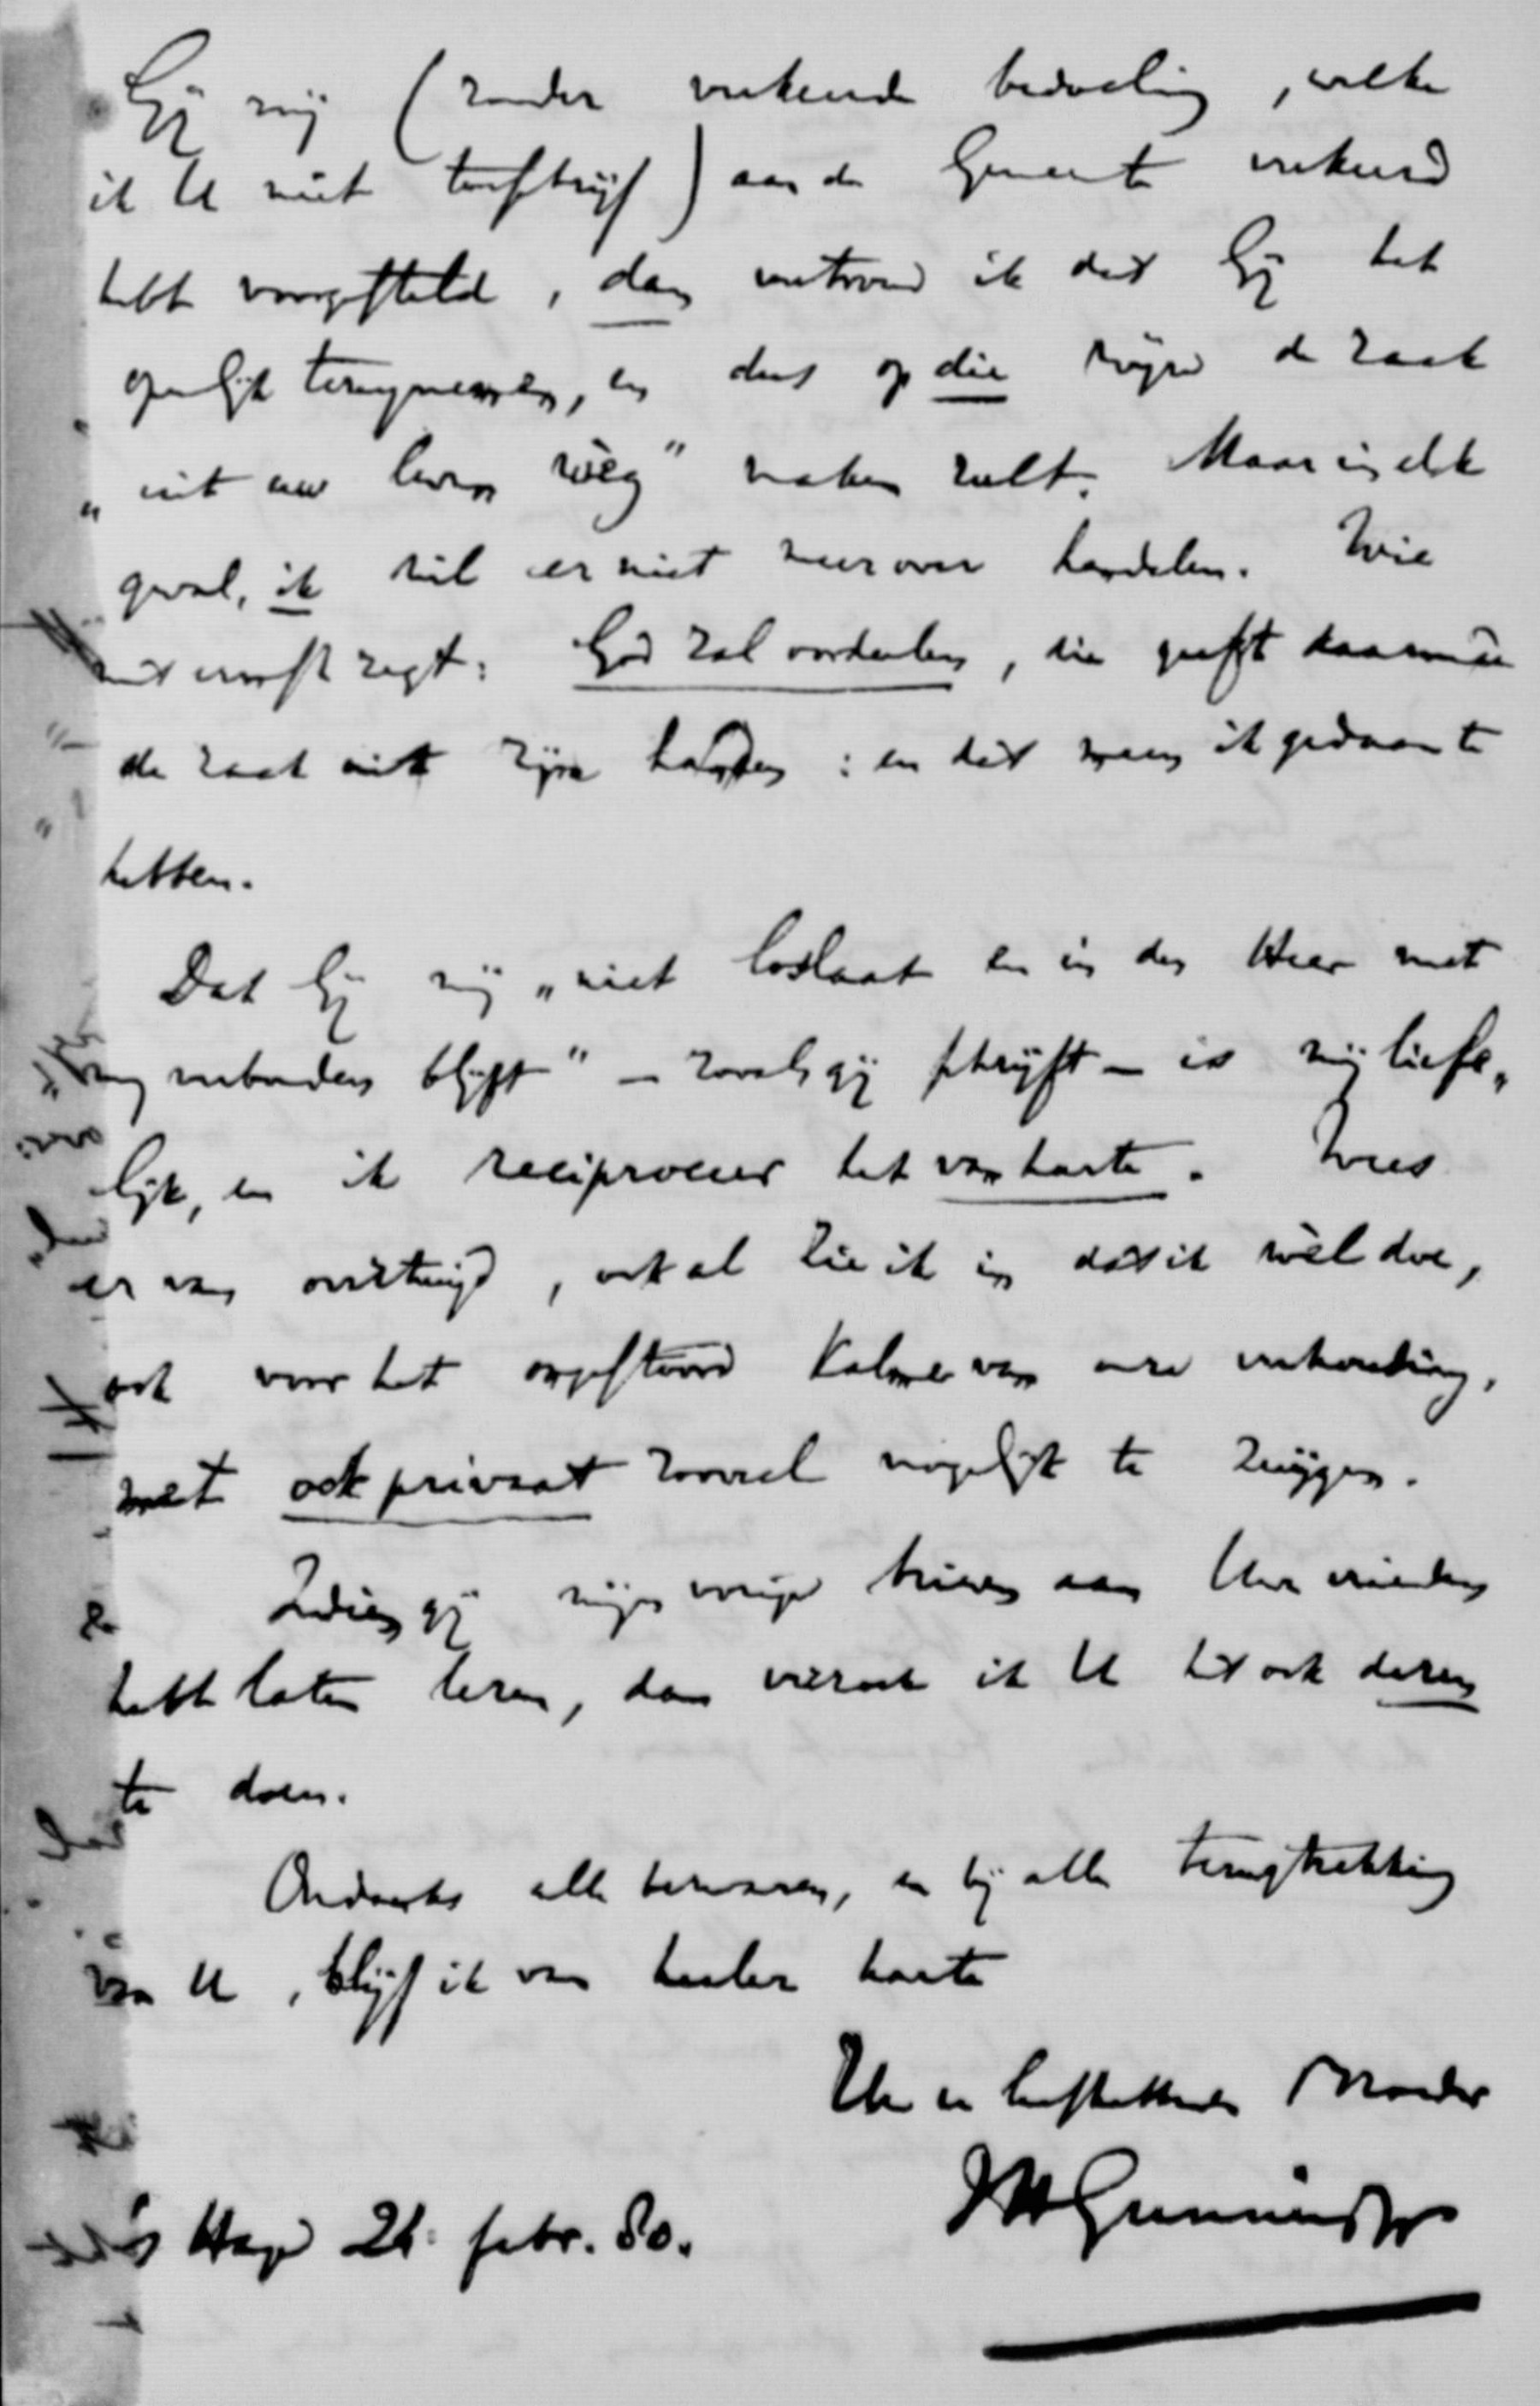 Gij mij (zonder verkeerde bedoeling, welke
ik U niet toeschrijf) aan de Gemeente verkeerd
hebt voorgesteld, dan vertrouw ik dat Gij het
openlijk terugnemen, en dus op die wijze de zaak
„uit uw leven weg" maken zult. Maar in elk
geval, ik wil er niet meer over handelen. Wie
met ernst zegt: God zal oordeelen, die geeft daarmede
de zaak uit zijne handen: en dat meen ik gedaan te
hebben.
Dat Gij mij „niet loslaat en in den Heer met
mij verbonden blijft" – zooals gij schrijft – is mij liefe„
lijk, en ik reciproceer het van harte. Wees
er van overtuigd, ook al zie ik in dat ik wèl doe,
ook voor het ongestoord kalme van onze verhouding,
met ook privaat zooveel mogelijk te zwijgen.
Indien gij mijn vorige brieven aan Uw vrienden
hebt laten lezen, dan verzoek ik U het ook dezen
te doen.
Ondanks alle bezwaren, en bij alle terugtrekking
van U, blijf ik van heeler harte
Uw u liefhebbende Broeder
JHGunning Jr
's Hage 21 febr. 80.